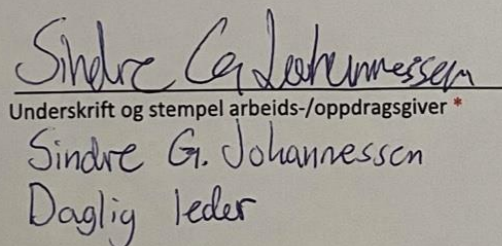 Sindre G Johannessen
Underskrift og stempel arbeids-/oppdragsgiver *
Sindre G. Johannessen
Daglig leder